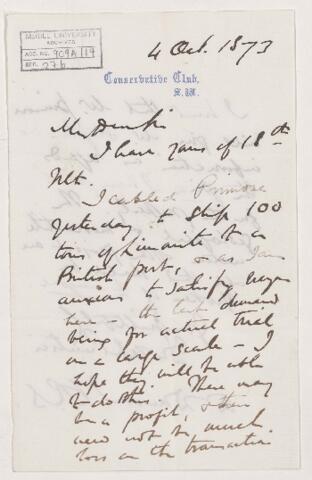 McGILL UNIVERSITY
ARCHIVES
ACC. NO. 909A/114
REF. 27b
4 Oct. 1873
Conservative Club,
S.W.
My Dear
I have yours of 18th
Ult.
I cabled Primrose
yesterday to ship 100
tons of Limonite to a
British port, & as I am
anxious to satisfy buyers
here - the last demand
being for actual trial
on a large scale - I
hope they will be able
to do this. There may
be a profit, & there
need not be much
loss on the transaction